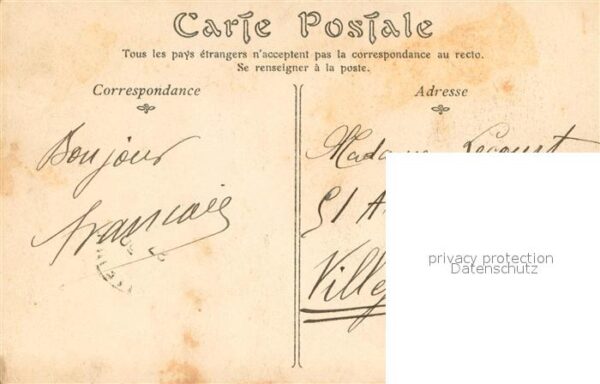 Carte Postale
Tous les pays étrangers n'acceptent pas la correspondance au recto.
Se renseigner à la poste.
Correspondance
Adresse
Bonjour
Francais
Madame Lecourt
51 A
Ville
privacy protection
Datenschutz